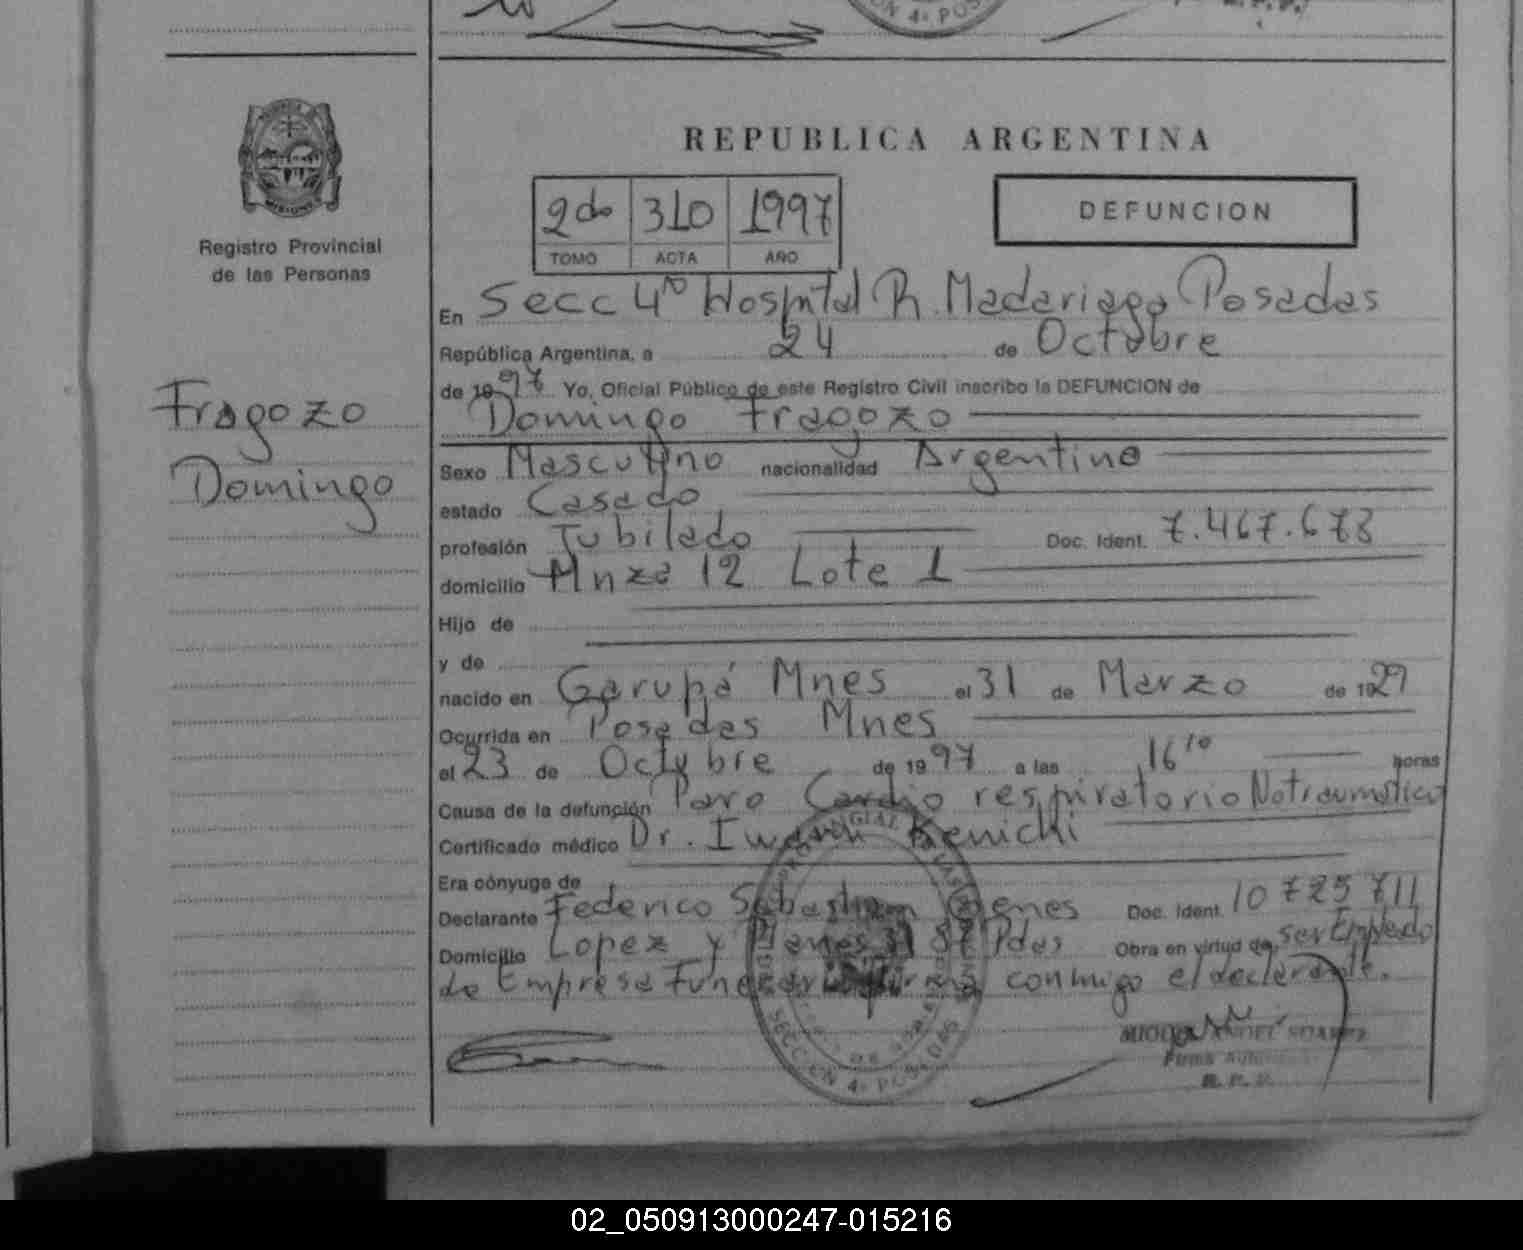 CION 4ª POS
REPUBLICA ARGENTINA
2do 310 1997
TOMO ACTA AÑO
DEFUNCION
Registro Provincial
de las Personas
En Secc 4ta Hospital R. Madariaga Posadas
República Argentina, a 24 de Octubre
de 1997 Yo, Oficial Público de este Registro Civil inscribo la DEFUNCION de
Domingo Fragozo
Fragozo
Domingo
Sexo Masculino nacionalidad Argentino
estado Casado
profesión Jubilado Doc. Ident. 7.467.673
domicilio Mnza 12 Lote 1
Hijo de
y de
nacido en Garupá Mnes el 31 de Marzo de 1929
Ocurrida en Posadas Mnes
el 23 de Octubre de 1997 a las 16 10 horas
Causa de la defunción Paro Cardio respiratorio No traumático
Certificado médico Dr. Kenichi
Era cónyuge de
Declarante Federico Sebastian Doc. Ident. 10 725 711
Domicilio Lopez y Planes Pdas Obra en virtud de ser Empleado
de Empresa Funeraria firma conmigo el declarante.
SECCION 4ª POSADAS
02_050913000247-015216